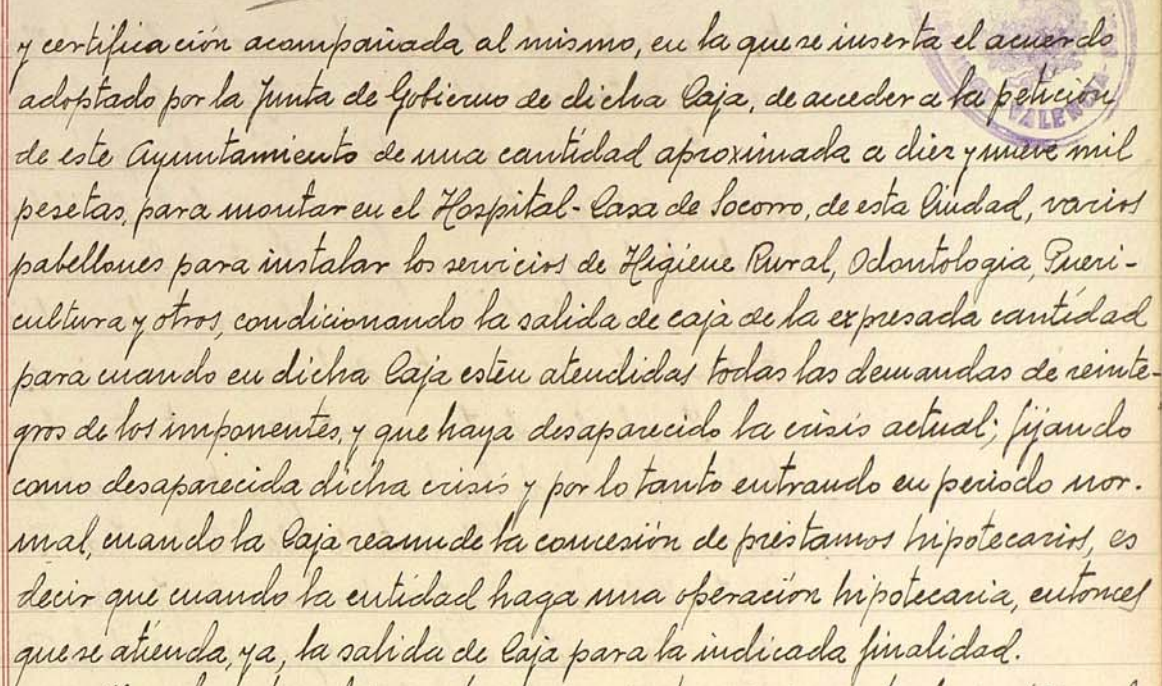 y certificación acompañada al mismo, en la que se inserta el acuerdo
adoptado por la Junta de Gobierno de dicha Caja, de acceder a la petición
de este Ayuntamiento de una cantidad aproximada a diez y nueve mil
pesetas, para montar en el Hospital-Casa de Socorro, de esta Ciudad, varios
pabellones para instalar los servicios de Higiene Rural, Odontologia, Pueri-
cultura y otros, condicionando la salida de caja de la expresada cantidad
para cuando en dicha Caja esten atendidas todas las demandas de reinte-
gros de los imponentes, y que haya desaparecido la crisis actual; fijando
como desaparecida dicha crisis y por lo tanto entrando en periodo nor-
mal, cuando la Caja reanude la concesión de préstamos hipotecarios, es
decir que cuando la entidad haga una operación hipotecaria, entonces
que se atienda, ya, la salida de Caja para la indicada finalidad.
VALENCIA